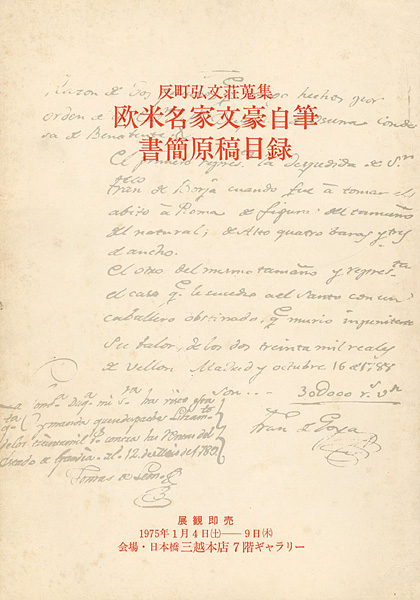 反町弘文荘蒐集
欧米名家文豪自筆
書簡原稿目録
Razon de los hechos por
orden de Osuna conde
sa de Benavente
El primero repres.ta la despedida de S.n
Fran.co de Borja cuando fue à tomar el
abito à Roma de figuras del tamaño
del natural; de Alto quatro baras y tres
de ancho.
El otro del mismo tamaño y represta
el caso q.e le sucedio a el Santo con un
caballero obstinado, q.e murio impenitente
Su balor, de los dos treinta mil reales
de vellon Madrid y octubre 16 de 1788
son... 30000 r.s v.n
Fran.co de Goya
展観即売
1975年1月4日(土)——9日(木)
会場・日本橋三越本店7階ギャラリー